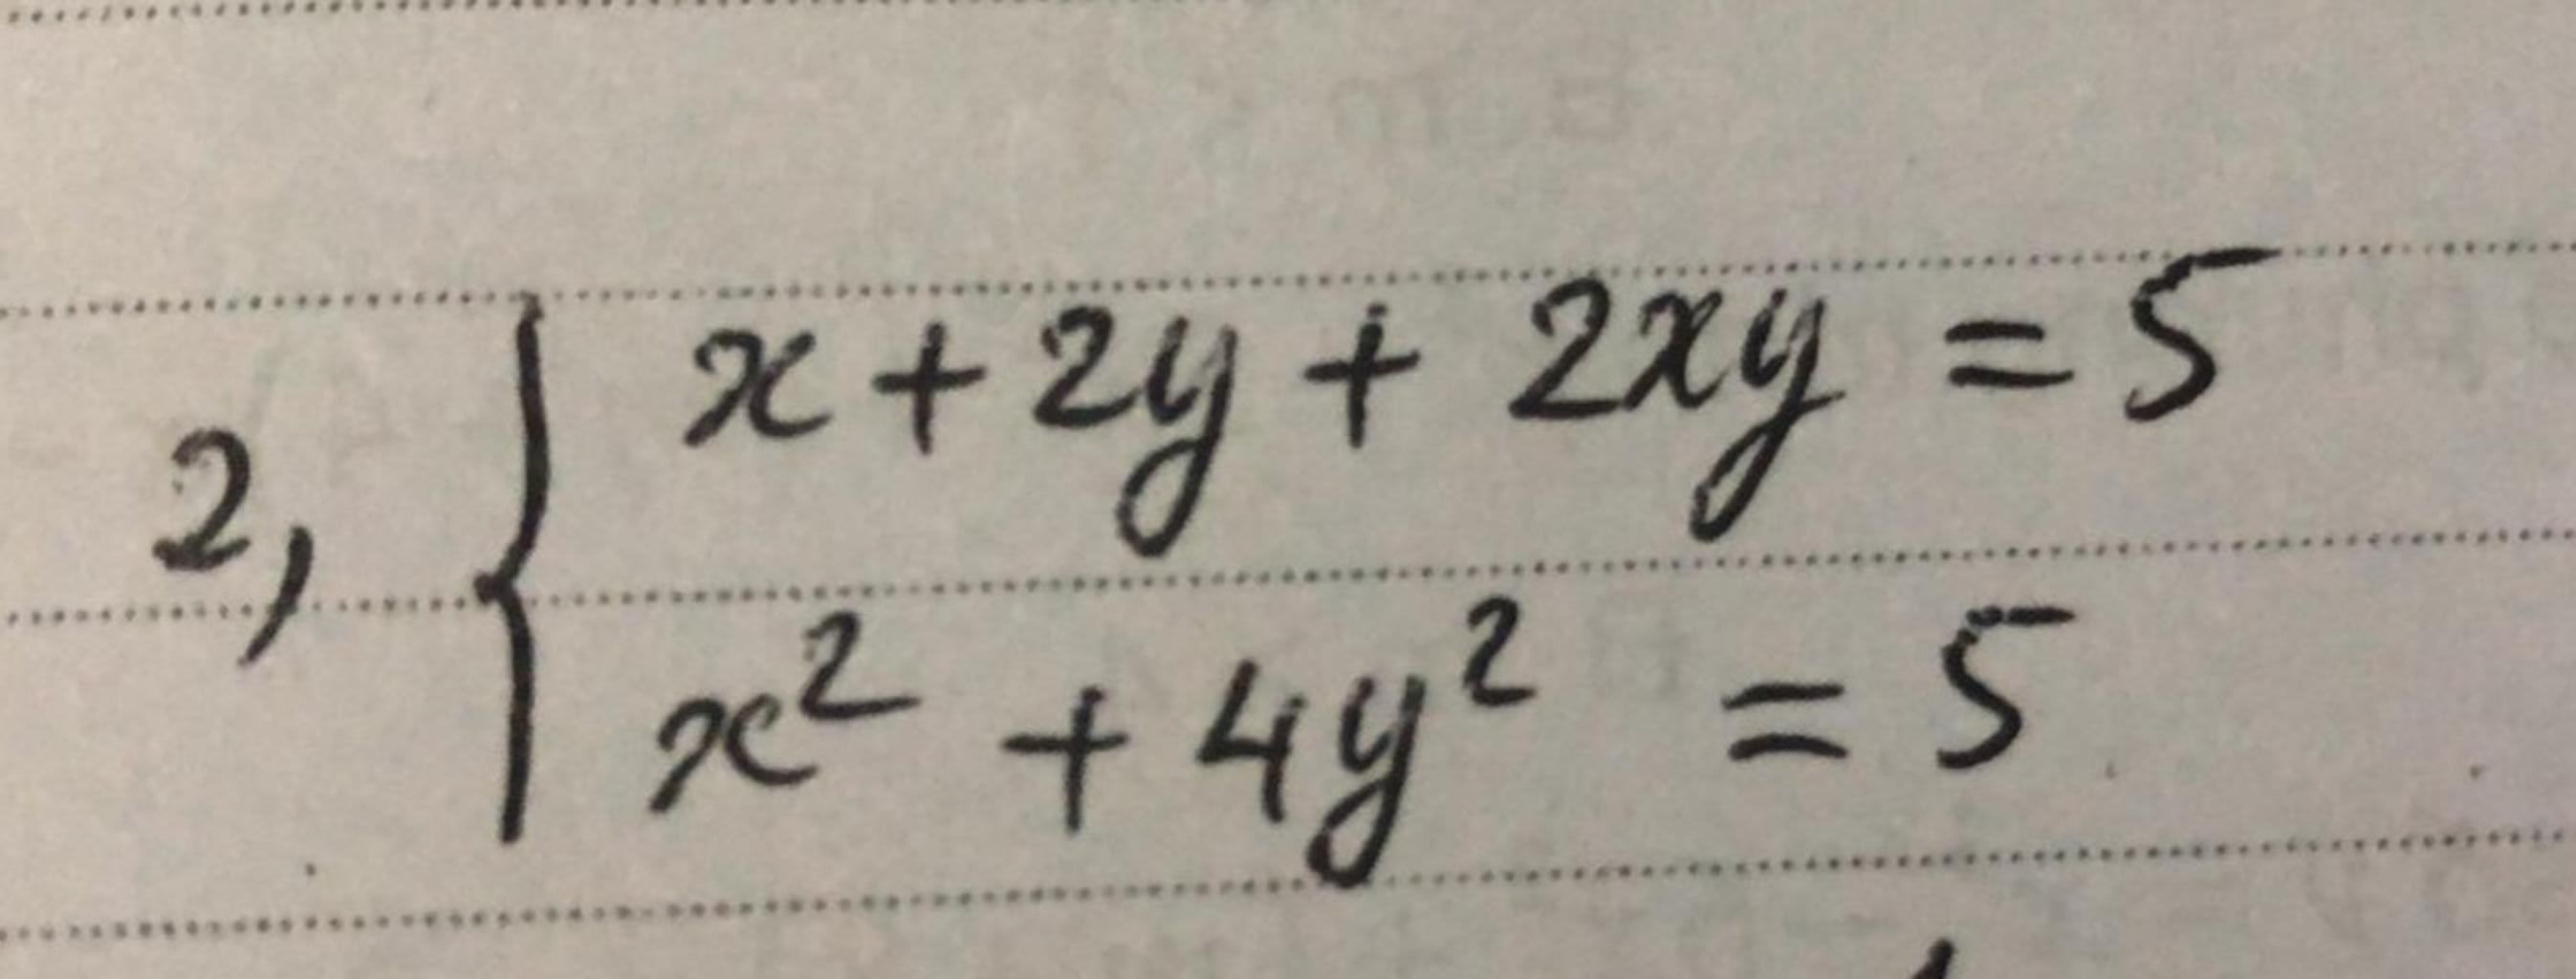 2, { x + 2y + 2xy = 5
x² + 4y² = 5